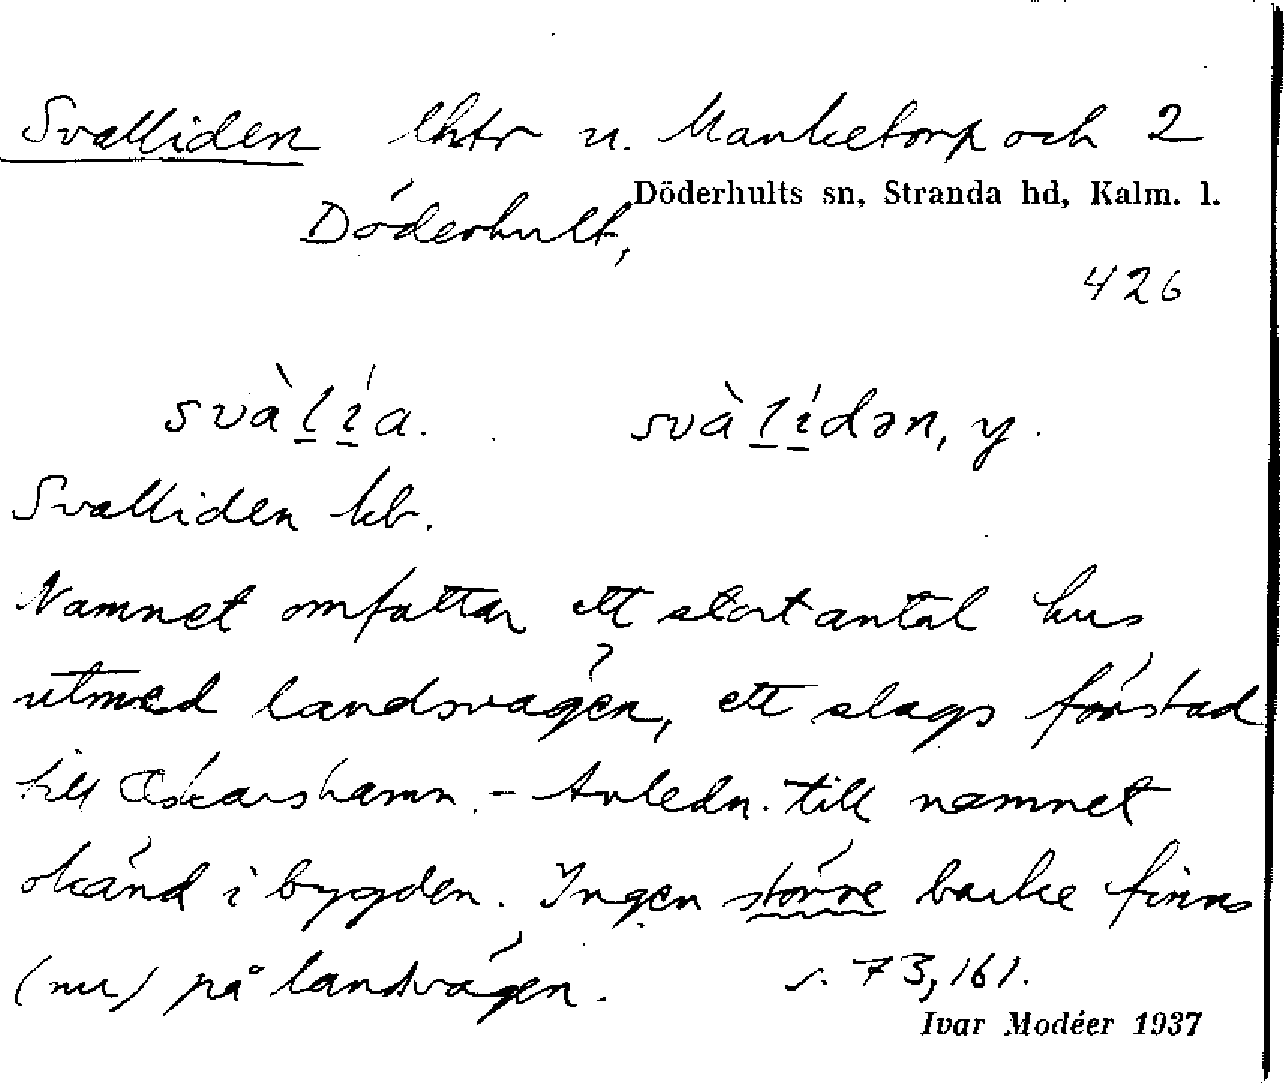 Svalliden lhtr u. Manketorp och 2
Döderhults sn, Stranda hd, Kalm. l.
Döderhult,
426
svàlia. svàlidən, y.
Svalliden kb.
Namnet omfattar ett stort antal hus
utmed landsvägen, ett slags förstad
till Oskarshamn. - Anledn. till namnet
okänd i bygden. Ingen större backe finns
(nu) på landsvägen. s. 73, 161.
Ivar Modéer 1937